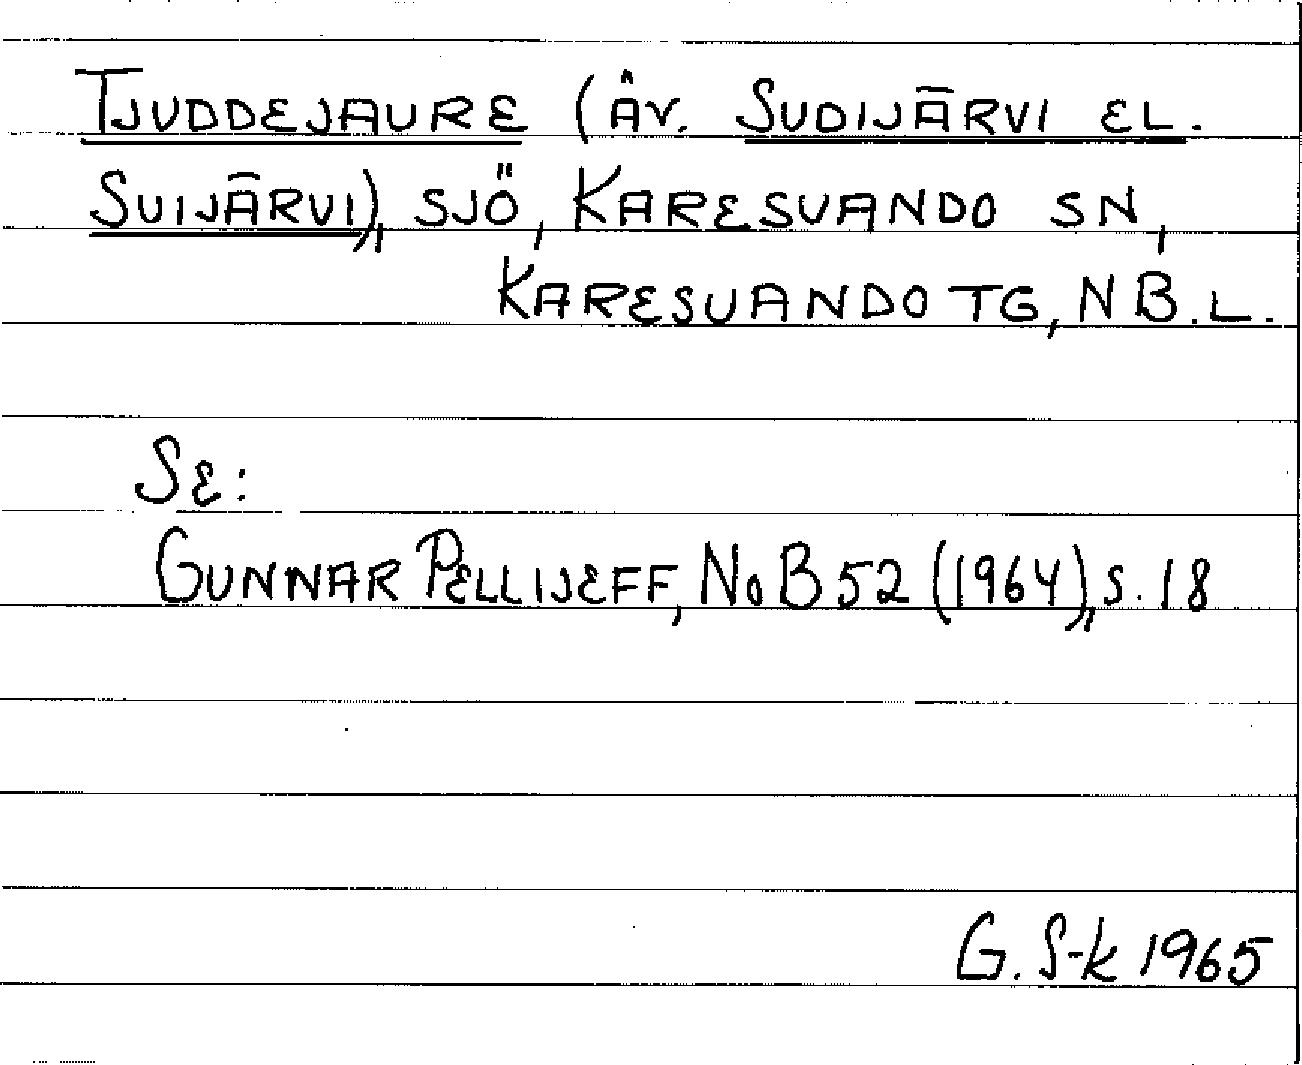 TJUDDEJAURE (ÄV. SUDIJÄRVI EL.
SUIJÄRVI), SJÖ, KARESUANDO SN,
KARESUANDO TG, NB.L.
SE:
GUNNAR PELLIJEFF, NoB 52 (1964), S. 18
G. S-k 1965